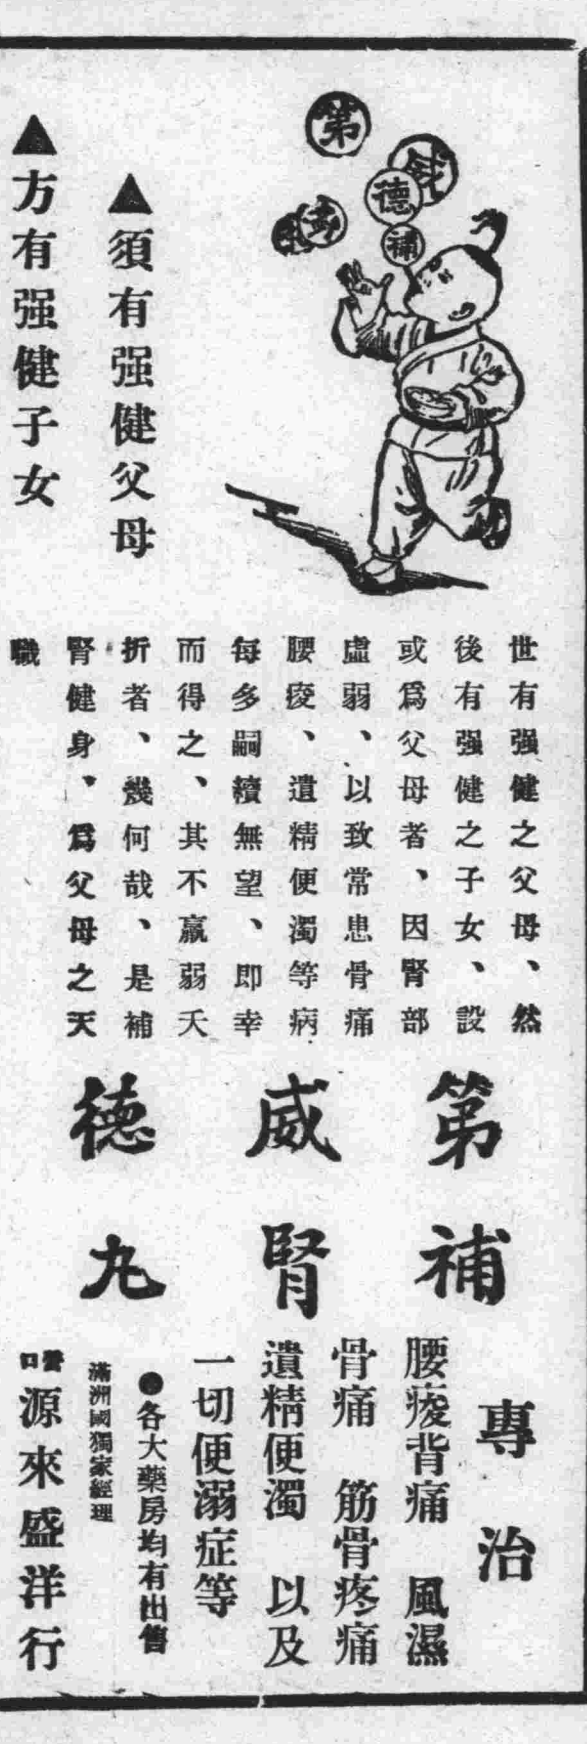 ▲須有强健父母
▲方有强健子女
第
威
德
補
世有强健之父母、然
後有强健之子女、設
或爲父母者、因腎部
虛弱、以致常患骨痛
腰痠、遺精便濁等病
每多嗣續無望、即幸
而得之、其不羸弱夭
折者、幾何哉、是補
腎健身、爲父母之天
職
第威德
補腎丸
專治
腰痠背痛 風濕
骨痛 筋骨疼痛
遺精便濁 以及
一切便溺症等
●各大藥房均有出售
滿洲國獨家經理
營口源來盛洋行